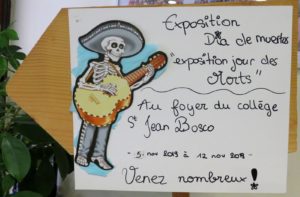 Exposition
Dia de muertos
"exposition jour des
Morts"
Au foyer du collège
St Jean Bosco
- 5 nov 2019 à 12 nov 2019 -
Venez nombreux !